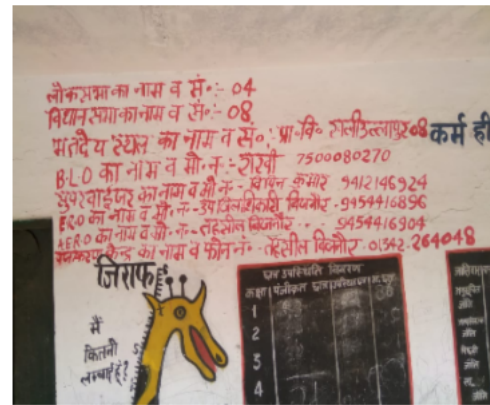 लोकसभा का नाम व सं॰:- 04
विधान सभा का नाम व सं॰:- 08
मतदेय स्थल का नाम व सं॰: प्रा॰ वि॰ 08
B.L.O का नाम व मो॰ नं॰:- राखी 7500080270
सुपरवाईजर का नाम व मो॰ नं॰- विपिन कुमार 9412146924
ERO का नाम व मो॰ नं॰- उप जिलाधिकारी बिजनौर- 9454416896
AERO का नाम व मो॰ नं॰- तहसील बिजनौर- 9454416904
केन्द्र का नाम व फोन नं॰- तहसील बिजनौर- 01342-264048
कर्म ही
जिराफ
मैं
कितनी
छात्र उपस्थिति विवरण
कक्षा पंजीकृत छात्र
1
2
3
4